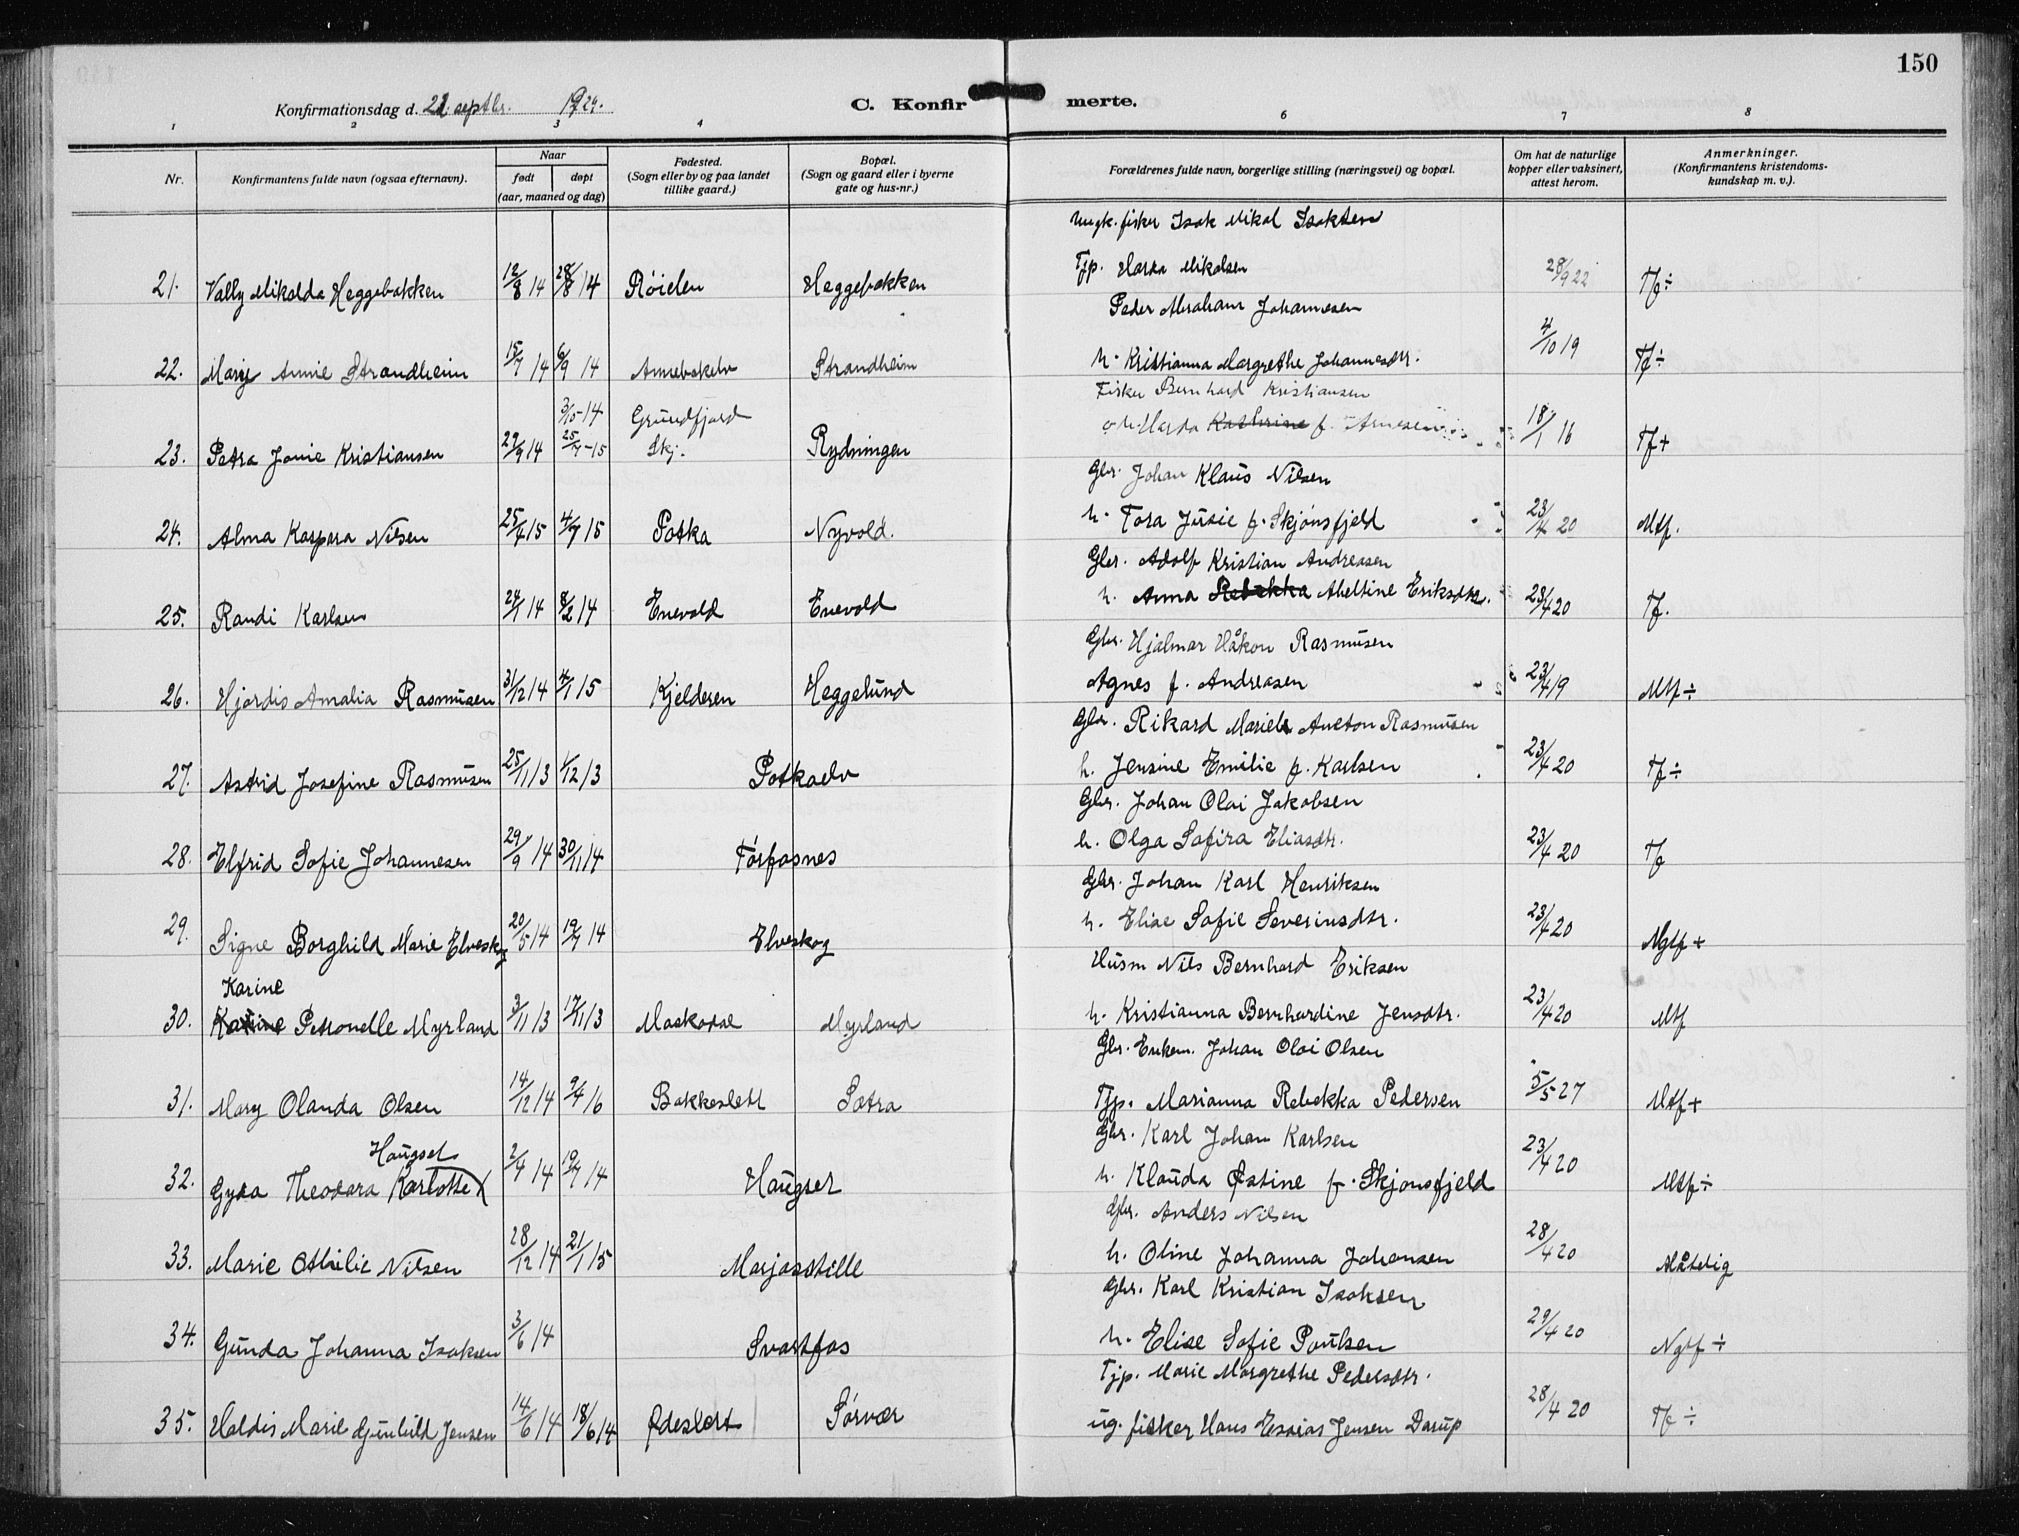 150
Konfirmationsdag d. 22. septbr. 1929.
C. Konfirmerte.
1 2 3 4 6 7 8
Nr.
Konfirmantens fulde navn (ogsaa efternavn).
Naar
født døpt
(aar, maaned og dag)
Fødested.
(Sogn eller by og paa landet
tillike gaard.)
Bopæl.
(Sogn og gaard eller i byerne
gate og hus-nr.)
Forældrenes fulde navn, borgerlige stilling (næringsvei) og bopæl.
Om hat de naturlige
kopper eller vaksinert,
attest herom.
Anmerkninger.
(Konfirmantens kristendoms-
kundskap m. v.).
Ungk. fisker Isak Mikal Isaksen
Tjp. Harda Mikalsen
21. Vally Mikalda Heggebakken 12/8 14 28/8 14 Røielen Heggebakken 28/9 22 Tf ÷
Peder Abraham Johannesen
22. Mary Annie Strandheim 15/7 14 6/9 14 Annebakelv Strandheim h. Kristianna Margrethe Johannesdtr. 4/10 19 Tf ÷
Fisker Bernhard Kristiansen
3/10-14 Grundfjord
o.h. Harda Kathrine f. Arnesen 18/1 16
23. Petra Jonie Kristiansen 29/9 14 25/7-15 Skj. Rydningen Tf +
Gbr. Johan Klaus Nilsen
24. Alma Kaspara Nilsen 25/4 15 4/7 15 Potka Nyvold. h. Tora Jusie f. Skjønsfjeld 23/4 20 Mtf.
Gbr. Adolf Kristian Andreasen
25. Randi Karlsen 24/1 14 8/2 14 Enevold Enevold h. Anna Rebekka Abeltine Eriksdtr. 23/4 20 Tf.
Gbr. Hjalmar Håkon Rasmusen
26. Hjordis Amalia Rasmusen 31/12 14 4/1 15 Kjelderen Heggelund Agnes f. Andreasen 23/4 19 Mtf ÷
Gbr. Rikard Mariel Aneton Rasmusen
27. Astrid Josefine Rasmusen 25/11 13 1/12 13 Potkaelv h. Jensine Emilie f. Karlsen 23/4 20 Tf ÷
Gbr. Johan Olai Jakobsen
28. Elfrid Sofie Johannesen 29/9 14 30/11 14 Torfosnes h. Olga Safira Eliasdtr. 23/4 20 Tf
Gbr. Johan Karl Henriksen
29. Signe Borghild Marie Elveskog 20/5 14 19/7 14 Elveskog h. Elise Sofie Severinsdtr. 23/4 20 Ngtf +
Husm Nils Bernhard Eriksen
Karine
30. Karine Petronelle Myrland 3/11 13 17/11 13 Maskodal Myrland h. Kristianna Bernhardine Jensdtr. 23/4 20 Mtf
Gbr. Enkem. Johan Olai Olsen
31. Mary Olanda Olsen 14/12 14 9/4 16 Bakkeslett Sætra Tjp. Marianna Rebekka Pedersen 5/5 27 Mtf +
Gbr. Karl Johan Karlsen
Haugset
32. Gyda Theodora Karlotte 2/4 14 19/7 14 Haugset h. Klauda Østine f. Skjønsfjeld 23/4 20 Mtf ÷
Gbr. Anders Nilsen
33. Marie Othilie Nilsen 28/12 14 21/1 15 Marjasstille h. Oline Johanna Johansen 28/4 20 Måtelig
Gbr. Karl Kristian Isaksen
34. Gunda Johanna Isaksen 3/6 14 Svartfos h. Elise Sofie Poulsen 29/4 20 Ngtf ÷
Tjp. Marie Margrethe Pedersdtr.
35. Haldis Marie Gunhild Jensen 14/6 14 18/6 14 Ødeslett Sørvær ug. fisker Hans Esaias Jensen Darup 28/4 20 Tf ÷